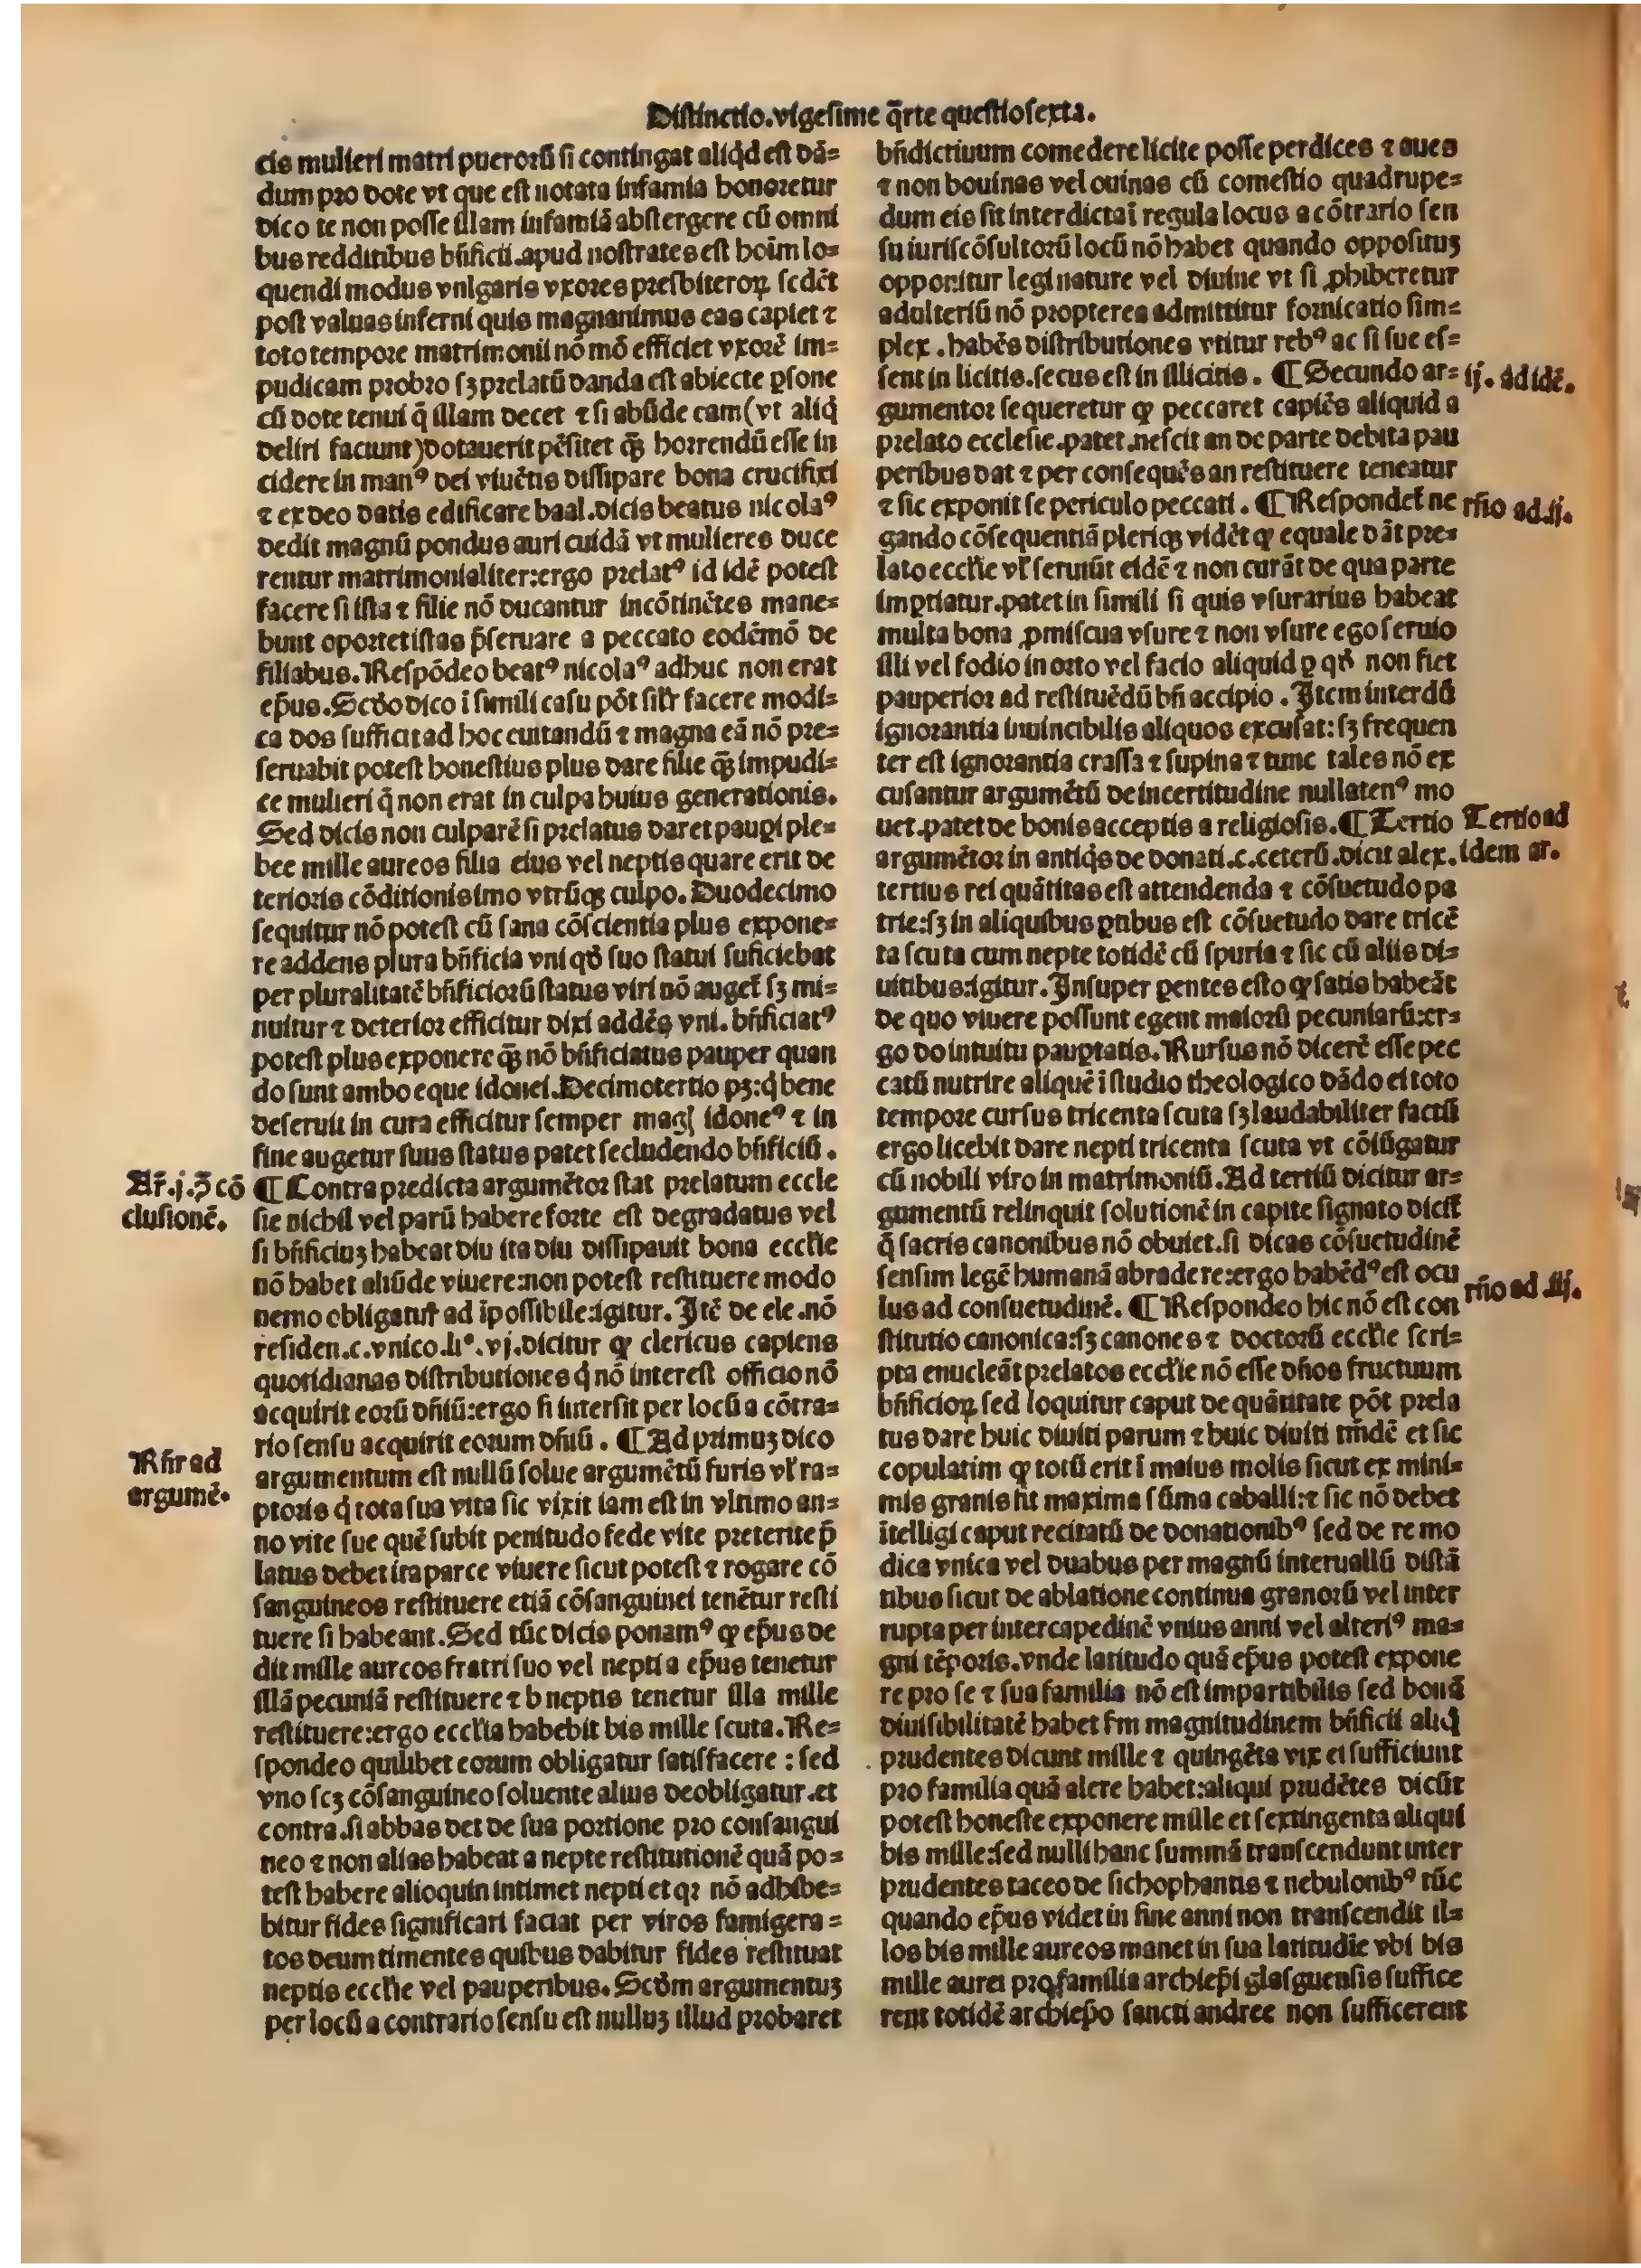 Distinctio.vigesime q̄rte questiosexta.
cis mulieri matri puerorū si contingat aliqd est dā=
dum pro dote vt que est notata infamia honoretur
dico te non posse illam infamiā abstergere cū omni
bus redditibus bn̄ficii.apud nostrates est hoīm lo=
quendi modus vulgaris vxores presbiteroꝝ sedēt
post valuas inferni quis magnanimus eas capiet ⁊
toto tempore matrimonii nō mō efficiet vxorē im=
pudicam probro sꝫ prelatū danda est abiecte ꝑsone
cū dote tenui q̄ illam decet ⁊ si abūde eam (vt aliq̄
deliri faciunt) dotauerit pēsitet qꝫ̄ horrendū esse in
cidere in manꝰ dei viuētis dissipare bona crucifixi
⁊ ex deo datis edificare baal.dicis beatus nicolaꝰ
dedit magnū pondus auri cuidā vt mulieres duce
rentur matrimonialiter:ergo prelatꝰ id idē potest
facere si ista ⁊ filie nō ducantur incōtinētes mane=
bunt oportet istas p̄seruare a peccato eodēmō de
filiabus.Respōdeo beatꝰ nicolaꝰ adhuc non erat
ep̄us.Scd̄o dico ī simili casu pōt silr̄ facere modi=
ca dos sufficit ad hoc euitandū ⁊ magna eā nō pre=
seruabit potest honestius plus dare filie qꝫ̄ impudi=
ce mulieri q̄ non erat in culpa huius generationis.
Sed dicis non culparē si prelatus daret pauꝑi ple=
bee mille aureos filia eius vel neptis quare erit de
terioris cōditionis imo vtrūqꝫ culpo. Duodecimo
sequitur nō potest cū sana cōscientia plus expone=
re addens plura bn̄ficia vni qd̄ suo statui suficiebat
per pluralitatē bn̄ficiorū status viri nō auget̄ sꝫ mi=
nuitur ⁊ deterior efficitur dixi addēs vni. bn̄ficiatꝰ
potest plus exponere qꝫ̄ nō bn̄ficiatus pauper quan
do sunt ambo eque idonei.Decimotertio pꝫ:q̄ bene
deseruit in cura efficitur semper magꝭ idoneꝰ ⁊ in
fine augetur suus status patet secludendo bn̄ficiū.
Ar̄.j.ꝯ̄ cō
clusionē.
¶ Contra predicta argumētor stat prelatum eccle
sie nichil vel parū habere forte est degradatus vel
si bn̄ficiuꝫ habeat diu ita diu dissipauit bona eccl̄ie
nō habet aliūde viuere:non potest restituere modo
nemo obligatur̄ ad īpossibile:igitur. Itē de ele .nō
residen.c.vnico.liᵒ.vj.dicitur ꝙ clericus capiens
quotidianas distributiones q̄ nō interest officio nō
acquirit eorū dn̄iū:ergo si intersit per locū a cōtra=
rio sensu acquirit eorum dn̄iū. ¶ Ad primuꝫ dico
Rn̄r ad
argumē.
argumentum est nullū solue argumētū furis vl̄ ra=
ptoris q̄ tota sua vita sic vixit iam est in vltimo an=
no vite sue quē subit penitudo fede vite preterite p̄
latus debet ita parce viuere sicut potest ⁊ rogare cō
sanguineos restituere etiā cōsanguinei tenētur resti
tuere si habeant.Sed tūc dicis ponamꝰ ꝙ ep̄us de
dit mille aureos fratri suo vel nepti a ep̄us tenetur
illā pecuniā restituere ⁊ b neptis tenetur illa mille
restituere:ergo eccl̄ia habebit bis mille scuta.Re=
spondeo quilibet eorum obligatur satisfacere : sed
vno scꝫ cōsanguineo soluente alius deobligatur.et
contra.si abbas det de sua portione pro consangui
neo ⁊ non alias habeat a nepte restitutionē quā po=
test habere alioquin intimet nepti et qꝛ nō adhibe=
bitur fides significari faciat per viros famigera=
tos deum timentes quibus dabitur fides restituat
neptis eccl̄ie vel pauperibus. Scd̄m argumentuꝫ
per locū a contrario sensu est nulluꝫ illud probaret
bn̄dictiuum comedere licite posse perdices ⁊ aues
⁊ non bouinas vel ouinas cū comestio quadrupe=
dum eis sit interdicta ī regula locus a cōtrario sen
su iuriscōsultorū locū nō habet quando opposituꝫ
opponitur legi nature vel diuine vt si ꝓhiberetur
adulteriū nō propterea admittitur fornicatio sim=
plex .habēs distributiones vtitur rebꝰ ac si sue es=
sent in licitis.secus est in illicitis. ¶ Secundo ar=
ij. ad idē.
gumentor sequeretur ꝙ peccaret capiēs aliquid a
prelato ecclesie.patet.nescit an de parte debita pau
peribus dat ⁊ per consequēs an restituere teneatur
⁊ sic exponit se periculo peccati. ¶ Respondet̄ ne
rn̄sio ad.ij.
gando cōsequentiā pleriqꝫ vidēt ꝙ equale dāt pre=
lato eccl̄ie vl̄ seruiūt eidē ⁊ non curāt de qua parte
impriatur.patet in simili si quis vsurarius habeat
multa bona ꝓmiscua vsure ⁊ non vsure ego seruio
illi vel fodio in orto vel facio aliquid ꝑ qd̄ non fiet
pauperior ad restituēdū bn̄ accipio. Item interdū
ignorantia inuincibilis aliquos excusat: sꝫ frequen
ter est ignorantia crassa ⁊ supina ⁊ tunc tales nō ex
cusantur argumētū de incertitudine nullatenꝰ mo
uet.patet de bonis acceptis a religiosis.¶ Tertio
Tertio ad
idem ar.
argumētor in antiqꝭ de donati.c.ceterū.dicit alex.
tertius rei quātitas est attendenda ⁊ cōsuetudo pa
trie:sꝫ in aliquibus ꝑtibus est cōsuetudo dare tricē
ta scuta cum nepte totidē cū spuria ⁊ sic cū aliis di=
uitibus:igitur. Insuper ꝑentes esto ꝙ satis habeāt
de quo viuere possunt egent maiorū pecuniarū:er=
go do intuitu pauꝑtatis. Rursus nō dicerē esse pec
catū nutrire aliquē ī studio theologico dādo ei toto
tempore cursus tricenta scuta sꝫ laudabiliter factū
ergo licebit dare nepti tricenta scuta vt cōiūgatur
cū nobili viro in matrimoniū. Ad tertiū dicitur ar=
gumentū relinquit solutionē in capite signato dicit̄
q̄ sacris canonibus nō obuiet.si dicas cōsuetudinē
sensim legē humanā abradere:ergo habēdꝰ est ocu
lus ad consuetudinē. ¶ Respondeo hic nō est con
rn̄sio ad .iij.
stitutio canonica:sꝫ canones ⁊ doctorū eccl̄ie scri=
pta enucleāt prelatos eccl̄ie nō esse dn̄os fructuum
bn̄ficioꝝ sed loquitur caput de quātitate pōt prela
tus dare huic diuiti parum ⁊ huic diuiti tm̄dē et sic
copulatim ꝙ totū erit ī maius molis sicut ex mini=
mis granis fit maxima sūma caballi:⁊ sic nō debet
ītelligi caput recitatū de donationibꝰ sed de re mo
dica vnica vel duabus per magnū interuallū distā
tibus sicut de ablatione continua granorū vel inter
rupta per intercapedinē vnius anni vel alteriꝰ ma=
gni tēporis.vnde latitudo quā ep̄us potest expone
re pro se ⁊ sua familia nō est impartibilis sed bonā
diuisibilitatē habet fm̄ magnitudinem bn̄ficii aliq̄
prudentes dicunt mille ⁊ quingēta vix ei sufficiunt
pro familia quā alere habet:aliqui prudētes dicūt
potest honeste exponere mille et sextingenta aliqui
bis mille:sed nulli hanc summā transcendunt inter
prudentes taceo de sichophantis ⁊ nebulonibꝰ tūc
quando ep̄us videt in fine anni non transcendit il=
los bis mille aureos manet in sua latitudīe vbi bis
mille aurei pro familia archiep̄i glasguensis suffice
rent totidē archiep̄o sancti andree non sufficerent